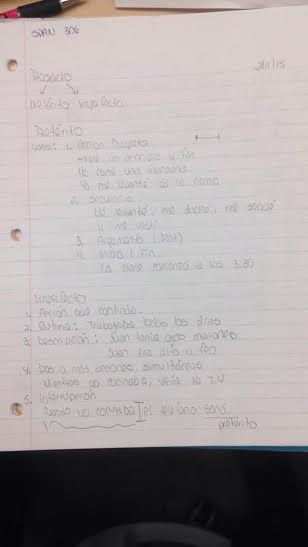 SPAN 306
2/11/15
Pasado
pretérito imperfecto
Pretérito
usos: 1. Accion Completa
-tiene un principio y fin
Yo comí una manzana
Yo me levanté de la cama
2. Secuencia
Me levanté, me duché, me sequé
y me vestí
3. Argumento (Plot)
4. Inicio / Fin
La clase comenzó a las 3:30
Imperfecto
1. Accion que continúa.
2. Rutina: Trabajaba todos los dias
3. Descripcion: Juan tenía ojos marrones
Juan era alto y feo
4. Dos o más acciones simultáneas
Mientras yo cocinaba, veía la T.V
5. Interrupcion
Cuando yo cocinaba el telefono sonó
pretérito